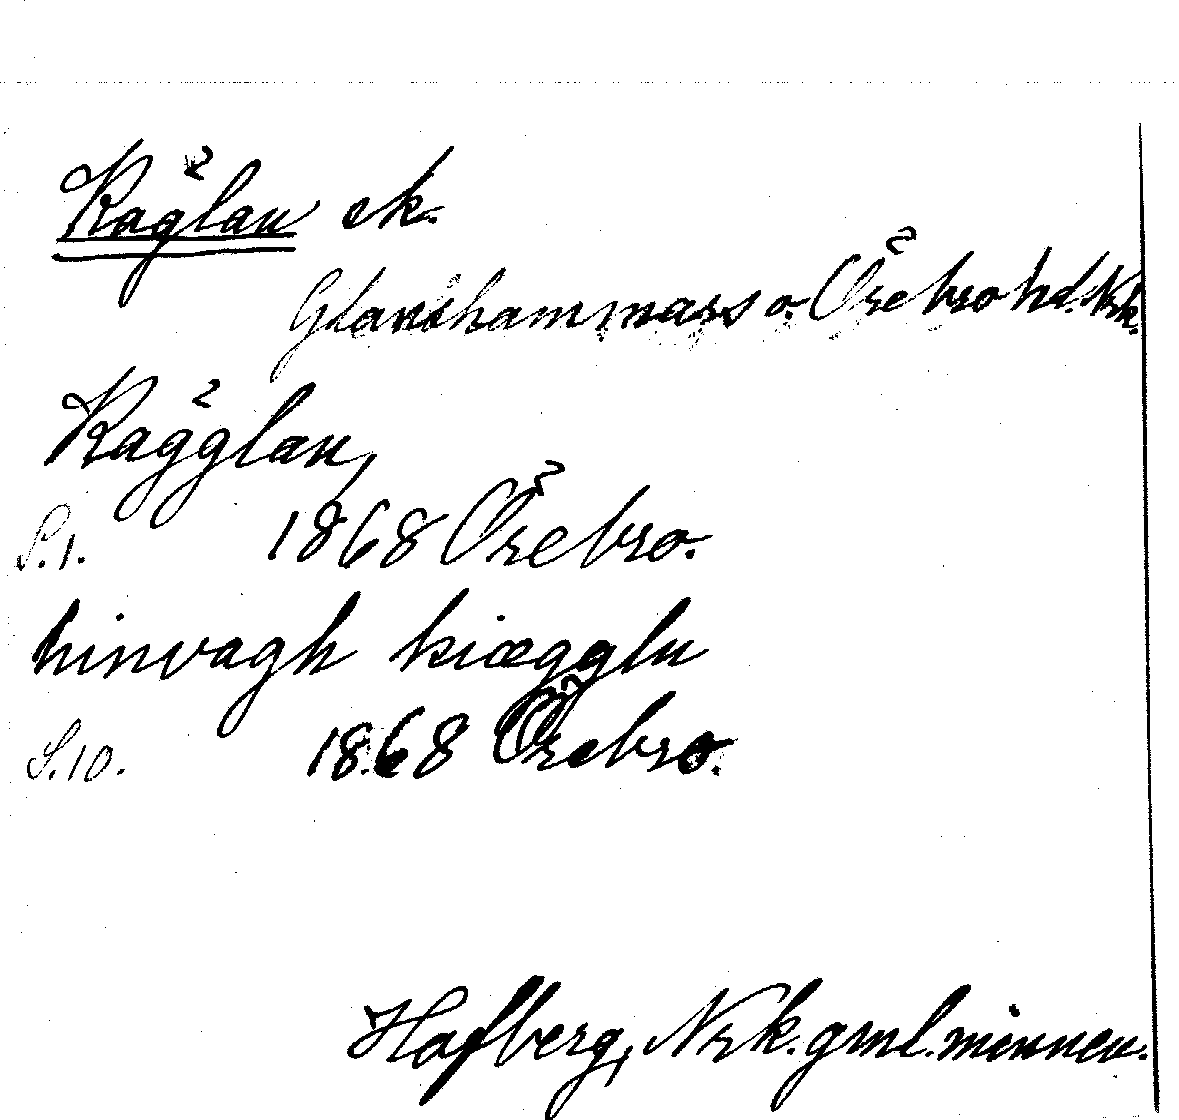 Käglan sk.
Glanshammars o. Örebro hd. Nrk.
Kägglan,
S.1. 1868 Örebro.
hinvagh kiægglu
S.10. 1868 Örebro.
Hofberg, Nrk. gml. minnen.